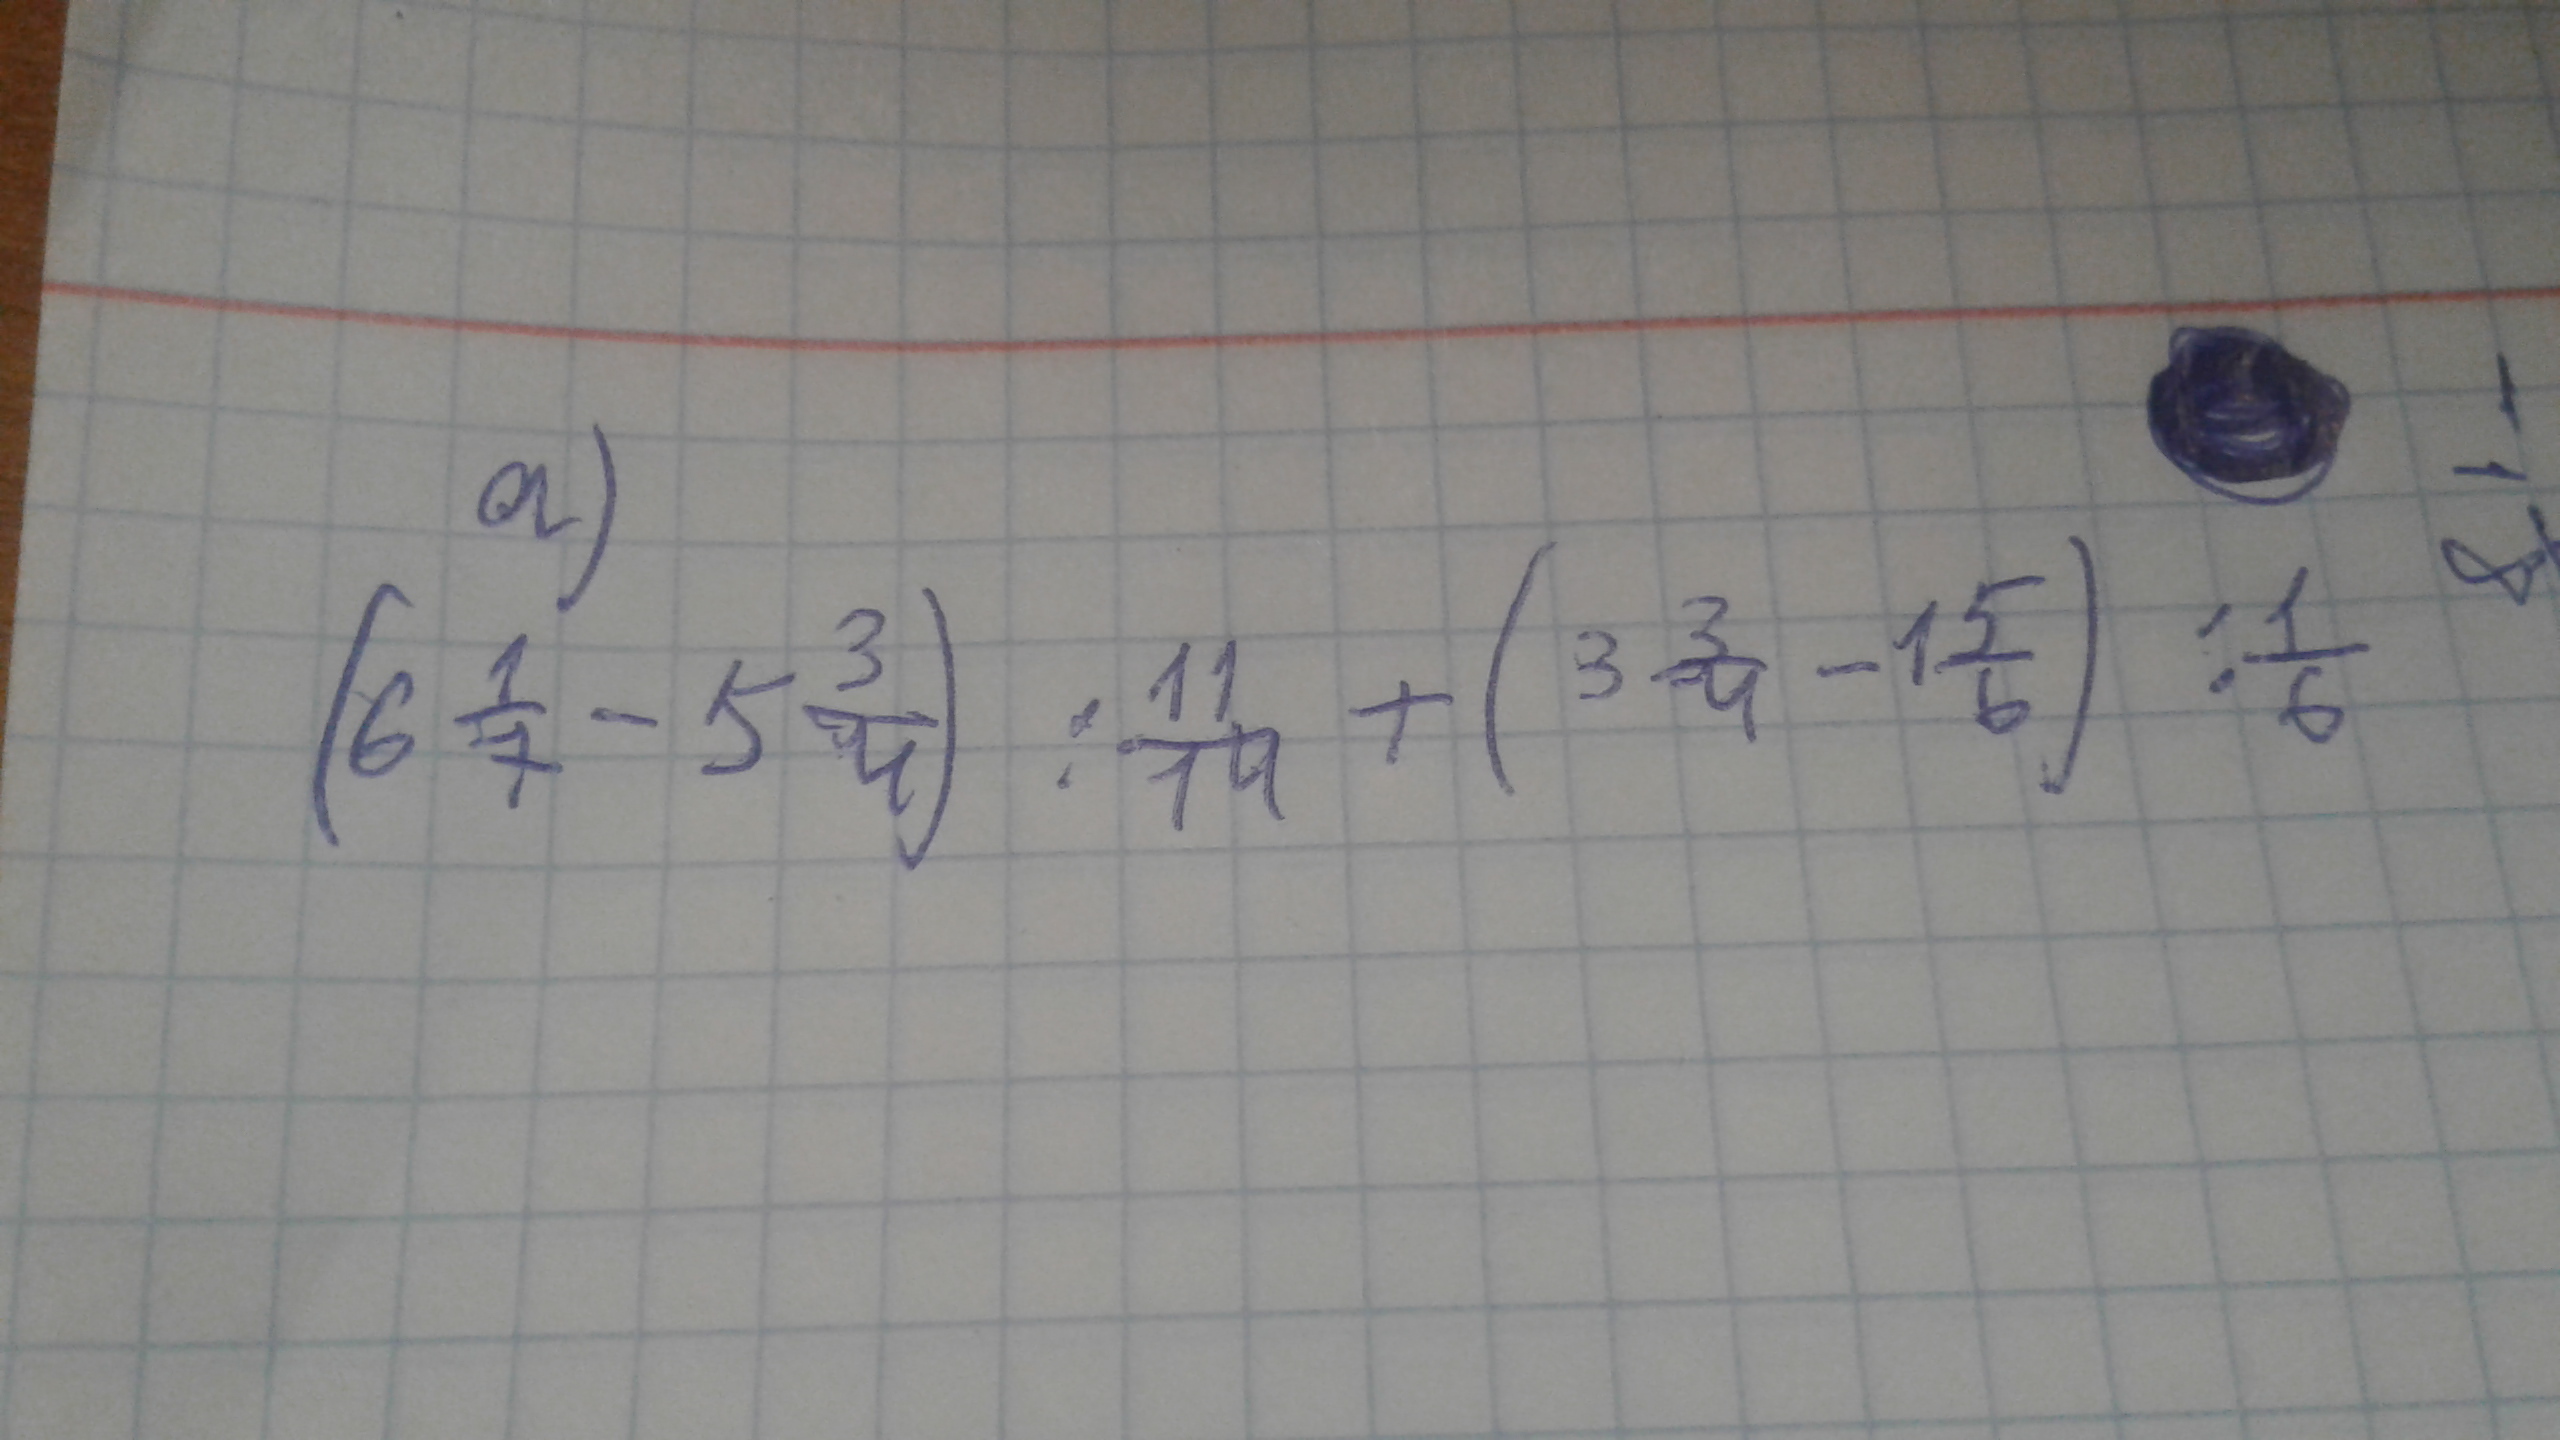 а)
(6 1/7 - 5 3/4) : 11/14 + (3 3/4 - 1 5/6) : 1/6